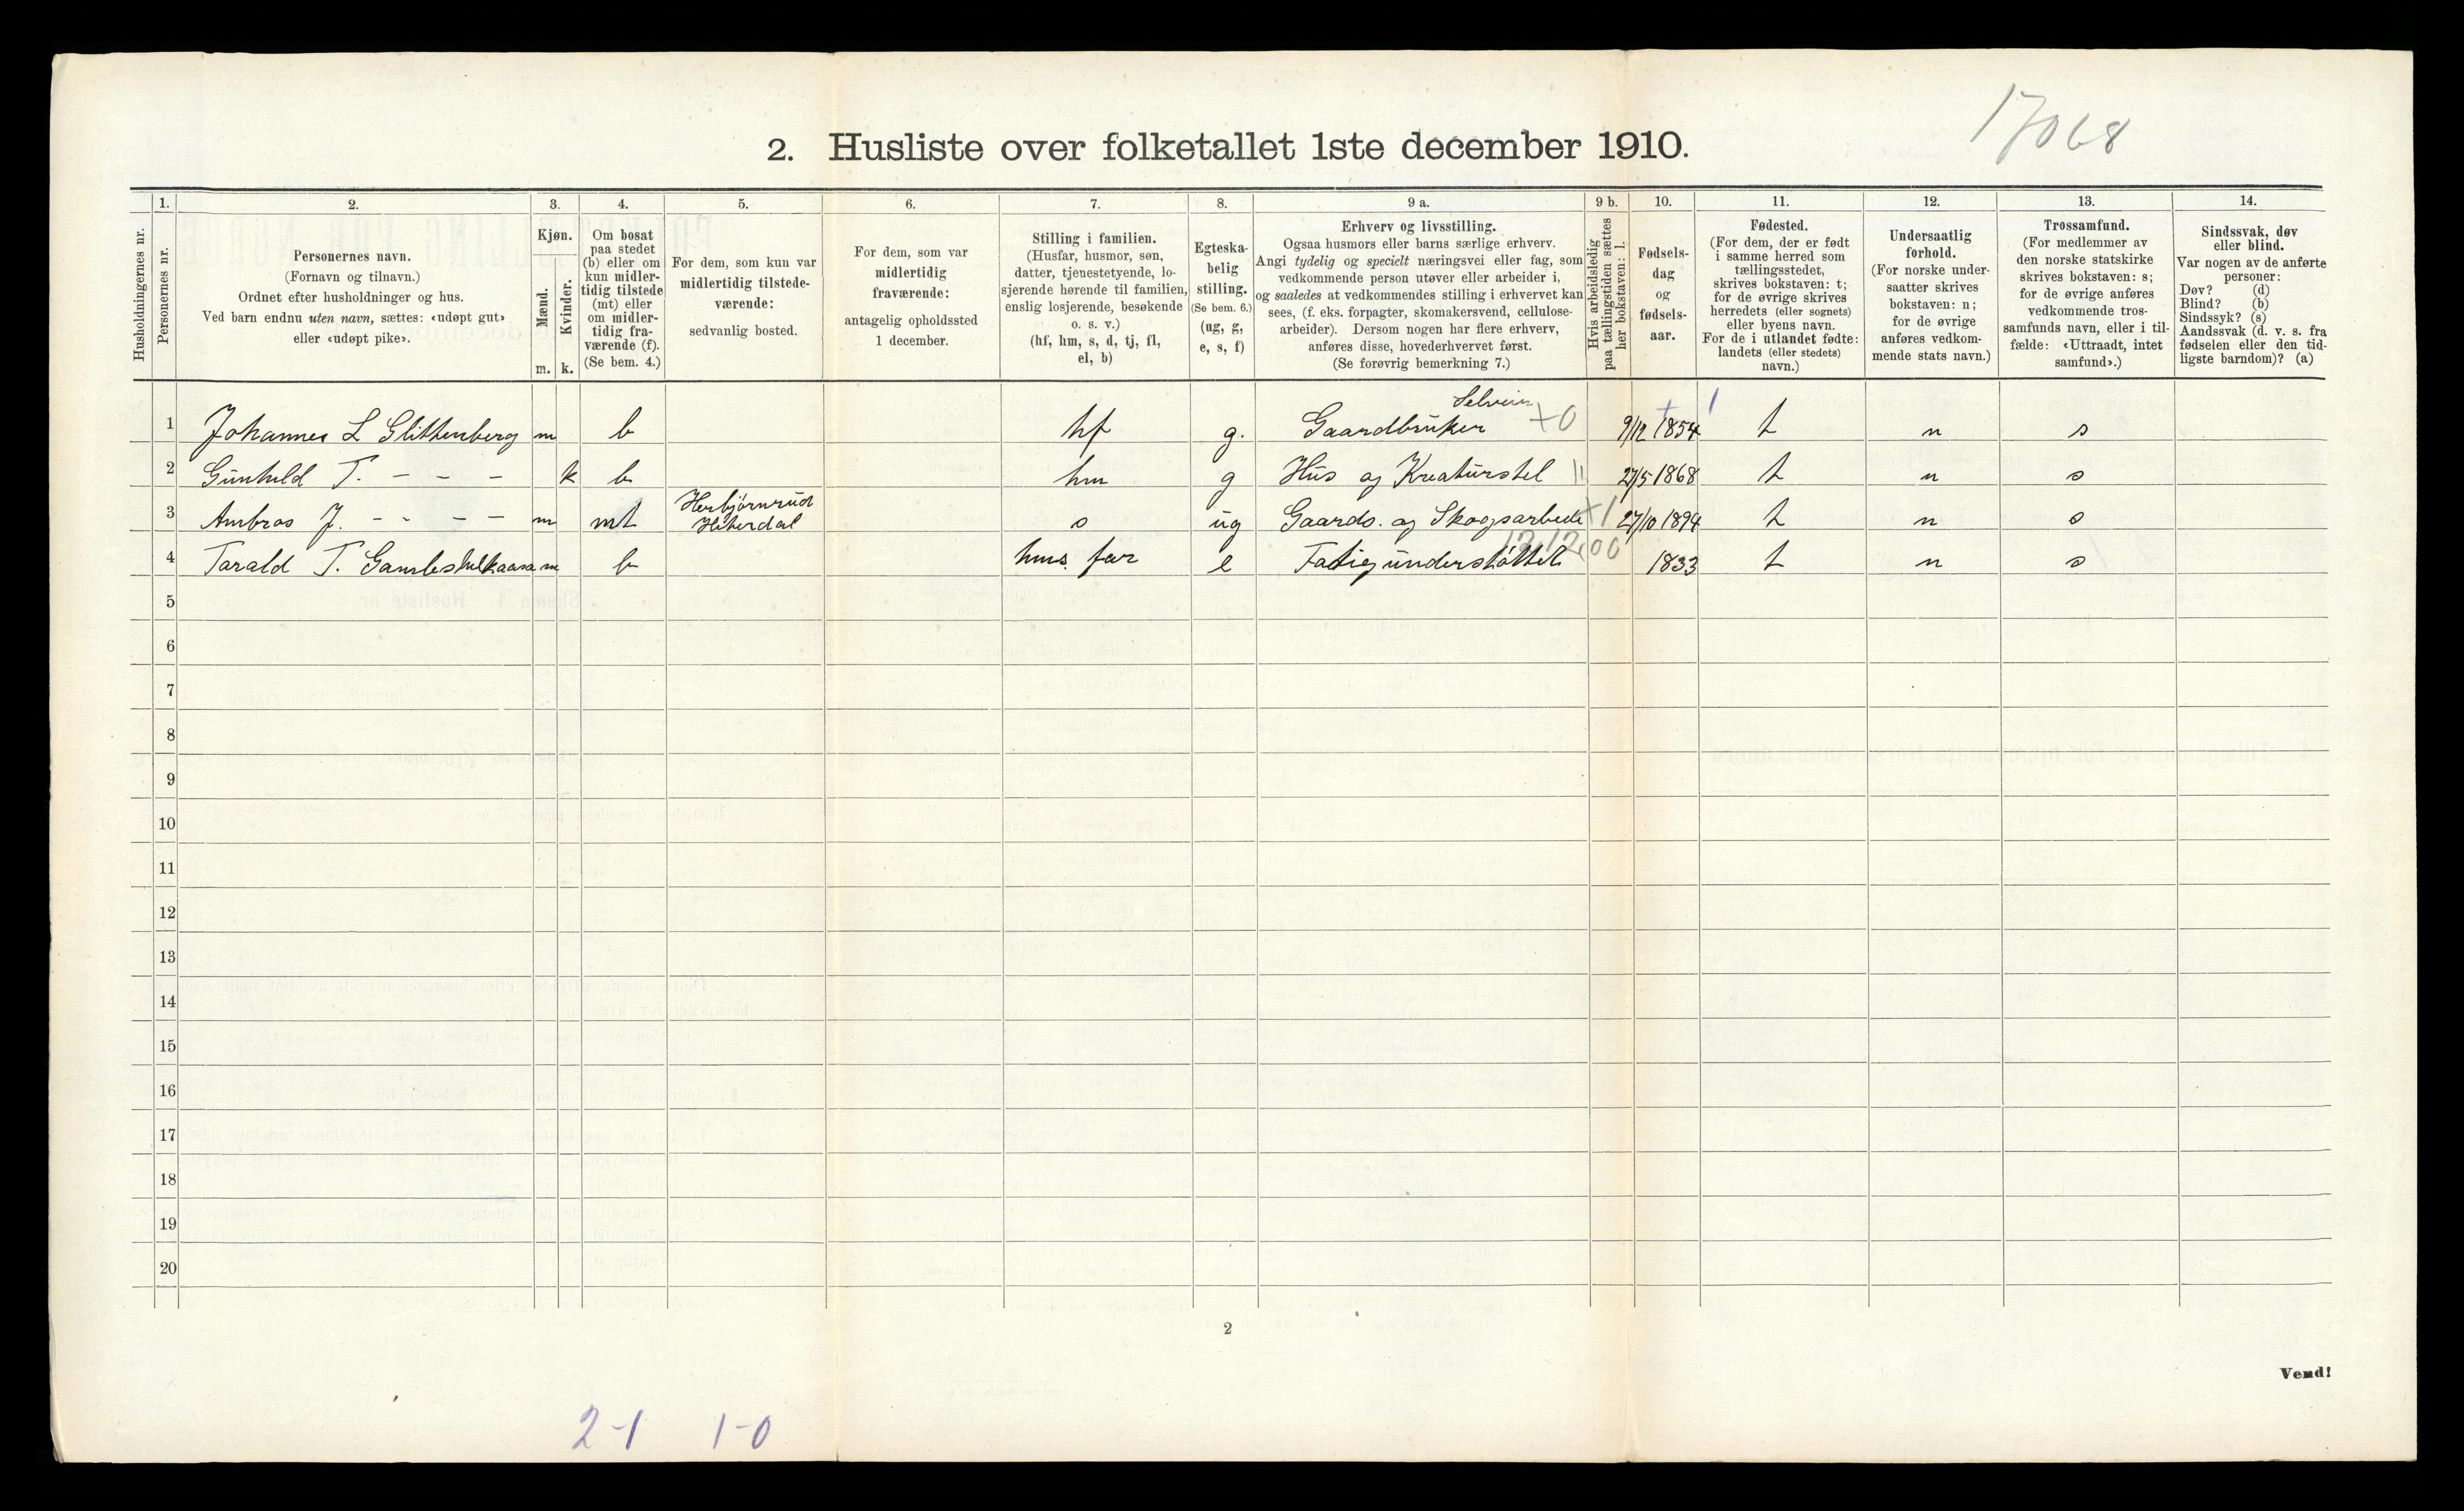 17068
2. Husliste over folketallet 1ste december 1910.
Husholdningernes nr.
1.
Personernes nr.
2.
Personernes navn.
(Fornavn og tilnavn.)
Ordnet efter husholdninger og hus.
Ved barn endnu uten navn, sættes: «udøpt gut»
eller «udøpt pike».
3.
Kjøn.
Mænd.
Kvinder.
m. k.
4.
Om bosat
paa stedet
(b) eller om
kun midler-
tidig tilstede
(mt) eller
om midler-
tidig fra-
værende (f).
(Se bem. 4.)
5.
For dem, som kun var
midlertidig tilstede-
værende:
sedvanlig bosted.
6.
For dem, som var
midlertidig
fraværende:
antagelig opholdssted
1 december.
7.
Stilling i familien.
(Husfar, husmor, søn,
datter, tjenestetyende, lo-
sjerende hørende til familien,
enslig losjerende, besøkende
o. s. v.)
(hf, hm, s, d, tj, fl,
el, b)
8.
Egteska-
belig
stilling.
(Se bem. 6.)
(ug, g,
e, s, f)
9 a.
Erhverv og livsstilling.
Ogsaa husmors eller barns særlige erhverv.
Angi tydelig og specielt næringsvei eller fag, som
vedkommende person utøver eller arbeider i,
og saaledes at vedkommendes stilling i erhvervet kan
sees, (f. eks. forpagter, skomakersvend, cellulose-
arbeider). Dersom nogen har flere erhverv,
anføres disse, hovederhvervet først.
(Se forøvrig bemerkning 7.)
9 b.
Hvis arbeidsledig
paa tællingstiden sættes
her bokstaven: l.
10.
Fødsels-
dag
og
fødsels-
aar.
11.
Fødested.
(For dem, der er født
i samme herred som
tællingsstedet,
skrives bokstaven: t;
for de øvrige skrives
herredets (eller sognets)
eller byens navn.
For de i utlandet fødte:
landets (eller stedets)
navn.)
12.
Undersaatlig
forhold.
(For norske under-
saatter skrives
bokstaven: n;
for de øvrige
anføres vedkom-
mende stats navn.)
13.
Trossamfund.
(For medlemmer av
den norske statskirke
skrives bokstaven: s;
for de øvrige anføres
vedkommende tros-
samfunds navn, eller i til-
fælde: «Uttraadt, intet
samfund».)
14.
Sindssvak, døv
eller blind.
Var nogen av de anførte
personer:
Døv? (d)
Blind? (b)
Sindssyk? (s)
Aandssvak (d. v. s. fra
fødselen eller den tid-
ligste barndom)? (a)
Selveier
1 Johannes L Glittenberg m b hf g. Gaardbruker +0 9/12 1854 t n s
2 Gunhild T. - - - k b hm g Hus og Kreaturstel 27/5 1868 t n s
Herbjørnrud
3 Ambros J. - - - - m mt Hiterdal s ug Gaards. og Skogsarbeide +1 27/10 1894 t n s
12,12,00
4 Tarald T. m b hms far e Fattigunderstøttet 1833 t n s
5
6
7
8
9
10
11
12
13
14
15
16
17
18
19
20
2
Vend!
2-1 1-0